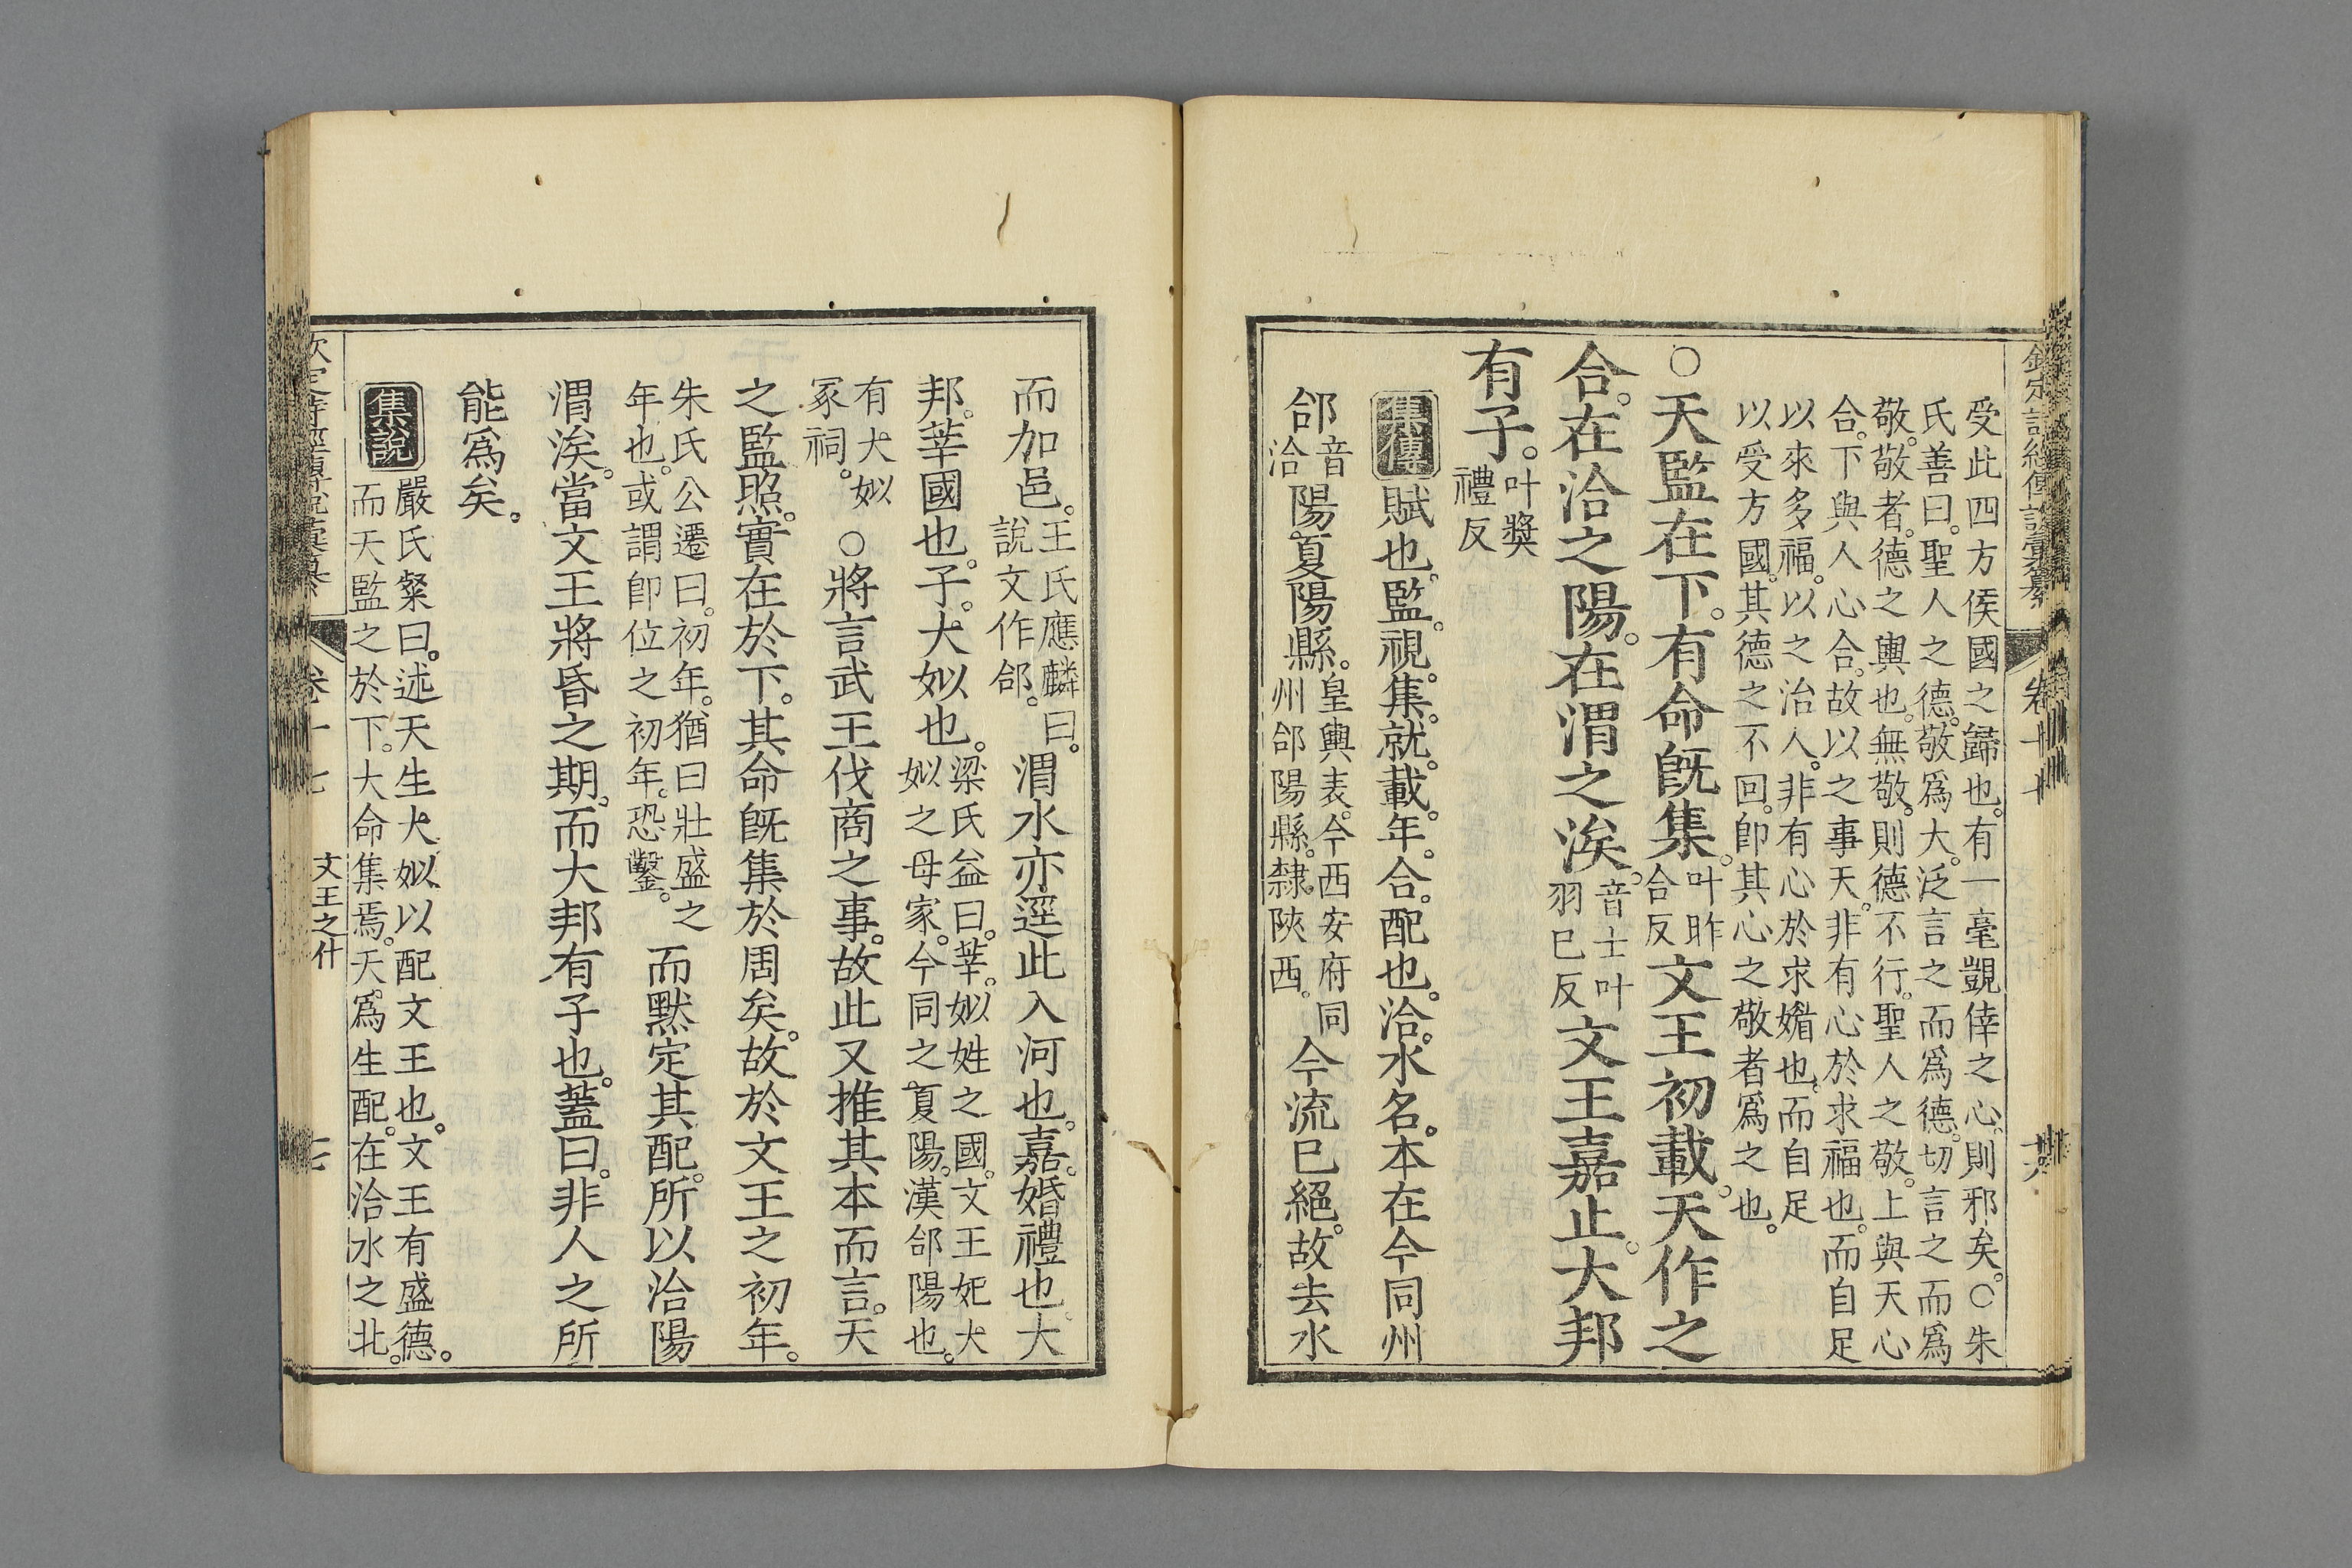 受此四方侯國之歸也。有一毫覬倖之心。則邪矣。○朱
氏善曰。聖人之德。敬爲大。泛言之而爲德。切言之而爲
敬。敬者。德之輿也。無敬。則德不行。聖人之敬。上與天心
合。下與人心合。故以之事天。非有心於求福也。而自足
以來多福。以之治人。非有心於求媚也。而自足
以受方國。其德之不回。卽其心之敬者爲之也。
○天監在下。有命旣集。叶昨合反文王初載。天作之
合。在洽之陽。在渭之涘。音士叶羽已反文王嘉止。大邦
有子。叶獎禮反
集傳 賦也。監。視。集。就。載。年。合。配也。洽。水名。本在今同州
郃音洽陽夏陽縣。皇輿表。今西安府同州郃陽縣。隸陝西。今流已絕。故去水
而加邑。王氏應麟曰。說文作郃。渭水亦逕此入河也。嘉。婚禮也。大
邦。莘國也。子。大姒也。梁氏益曰。莘。姒姓之國。文王妃大姒之母家。今同之夏陽。漢郃陽也。
有大姒冢祠。○將言武王伐商之事。故此又推其本而言。天
之監照。實在於下。其命旣集於周矣。故於文王之初年。
朱氏公遷曰。初年。猶曰壯盛之年也。或謂卽位之初年。恐鑿。而默定其配。所以洽陽
渭涘。當文王將昏之期。而大邦有子也。蓋曰。非人之所
能爲矣。
集說 嚴氏粲曰。述天生大姒以配文王也。文王有盛德。
而天監之於下。大命集焉。天爲生配。在洽水之北。
文王之什